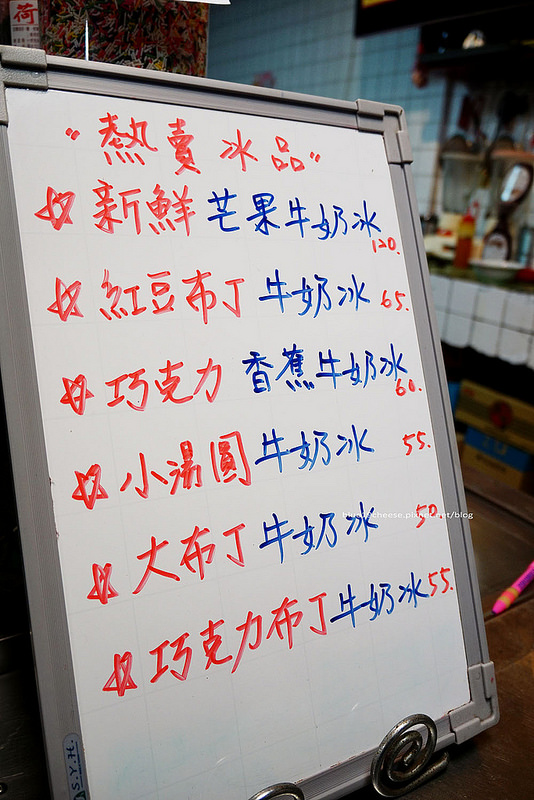 荷
"熱賣冰品"
☆新鮮芒果牛奶冰 120.
☆紅豆布丁牛奶冰 65.
☆巧克力香蕉牛奶冰 60.
☆小湯圓牛奶冰 55.
☆大布丁牛奶冰 50
☆巧克力布丁牛奶冰 55.
S.Y.H.